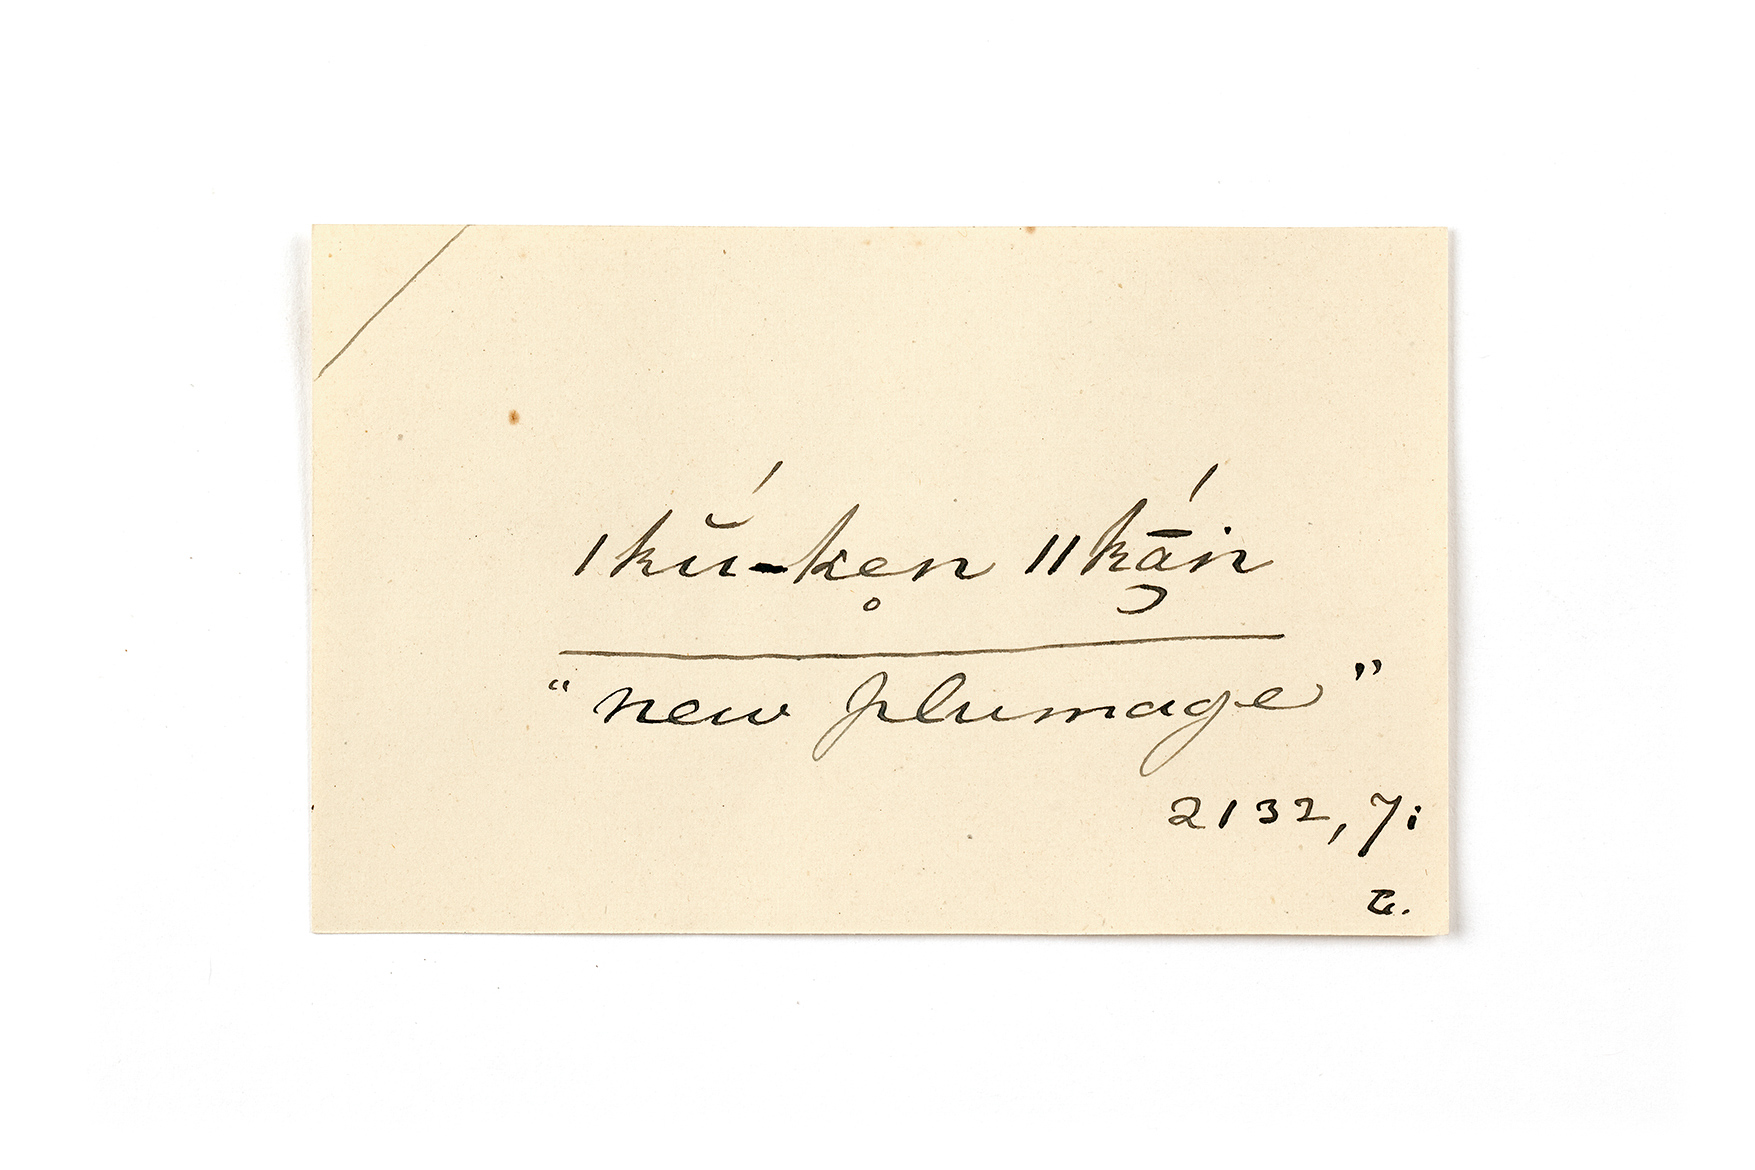 |kŭ́-ken̥ ||kā̯́in
“new plumage”
2132, 7i